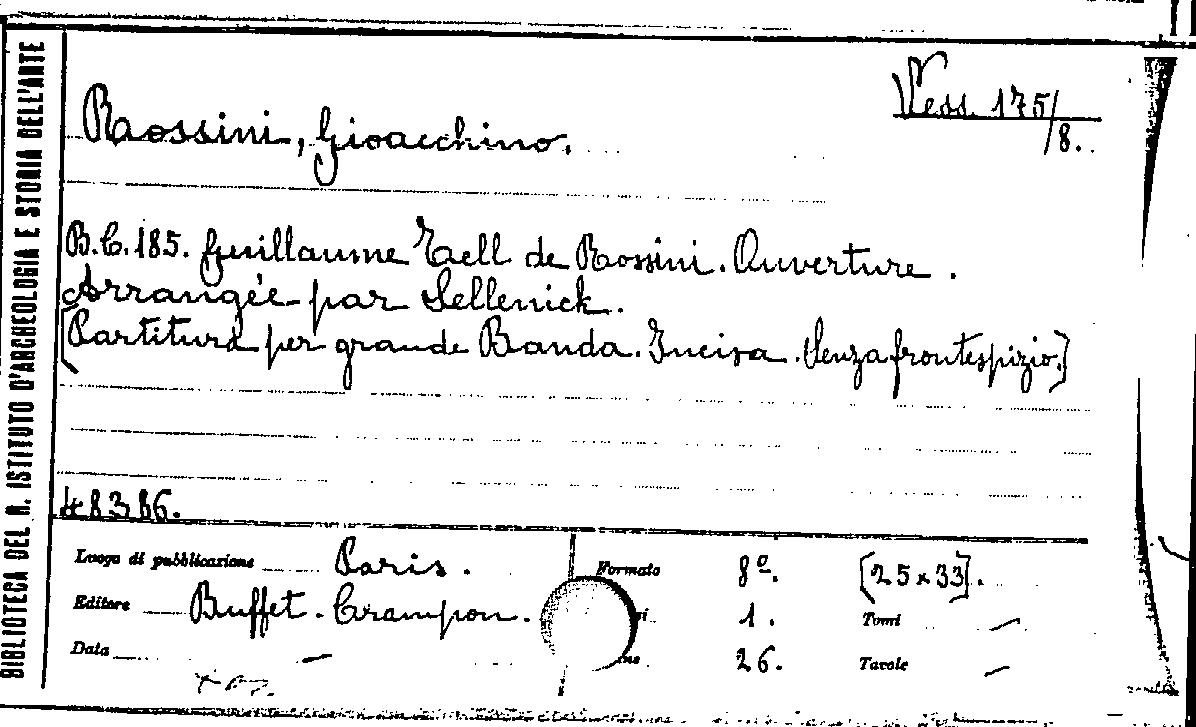 BIBLIOTECA DEL R. ISTITUTO D'ARCHEOLOGIA E STORIA DELL'ARTE
Vess. 175/8.
Rossini, Gioacchino.
B.C. 185. Guillaume Tell de Rossini. Ouverture.
Arrangée par Sellenick.
[Partitura per grande Banda. Incisa. Senza frontespizio.]
48386.
Luogo di pubblicazione Paris. Formato 8º. [25 x 33].
Editore Buffet-Crampon. 1. Tomi —
Data — 26. Tavole —